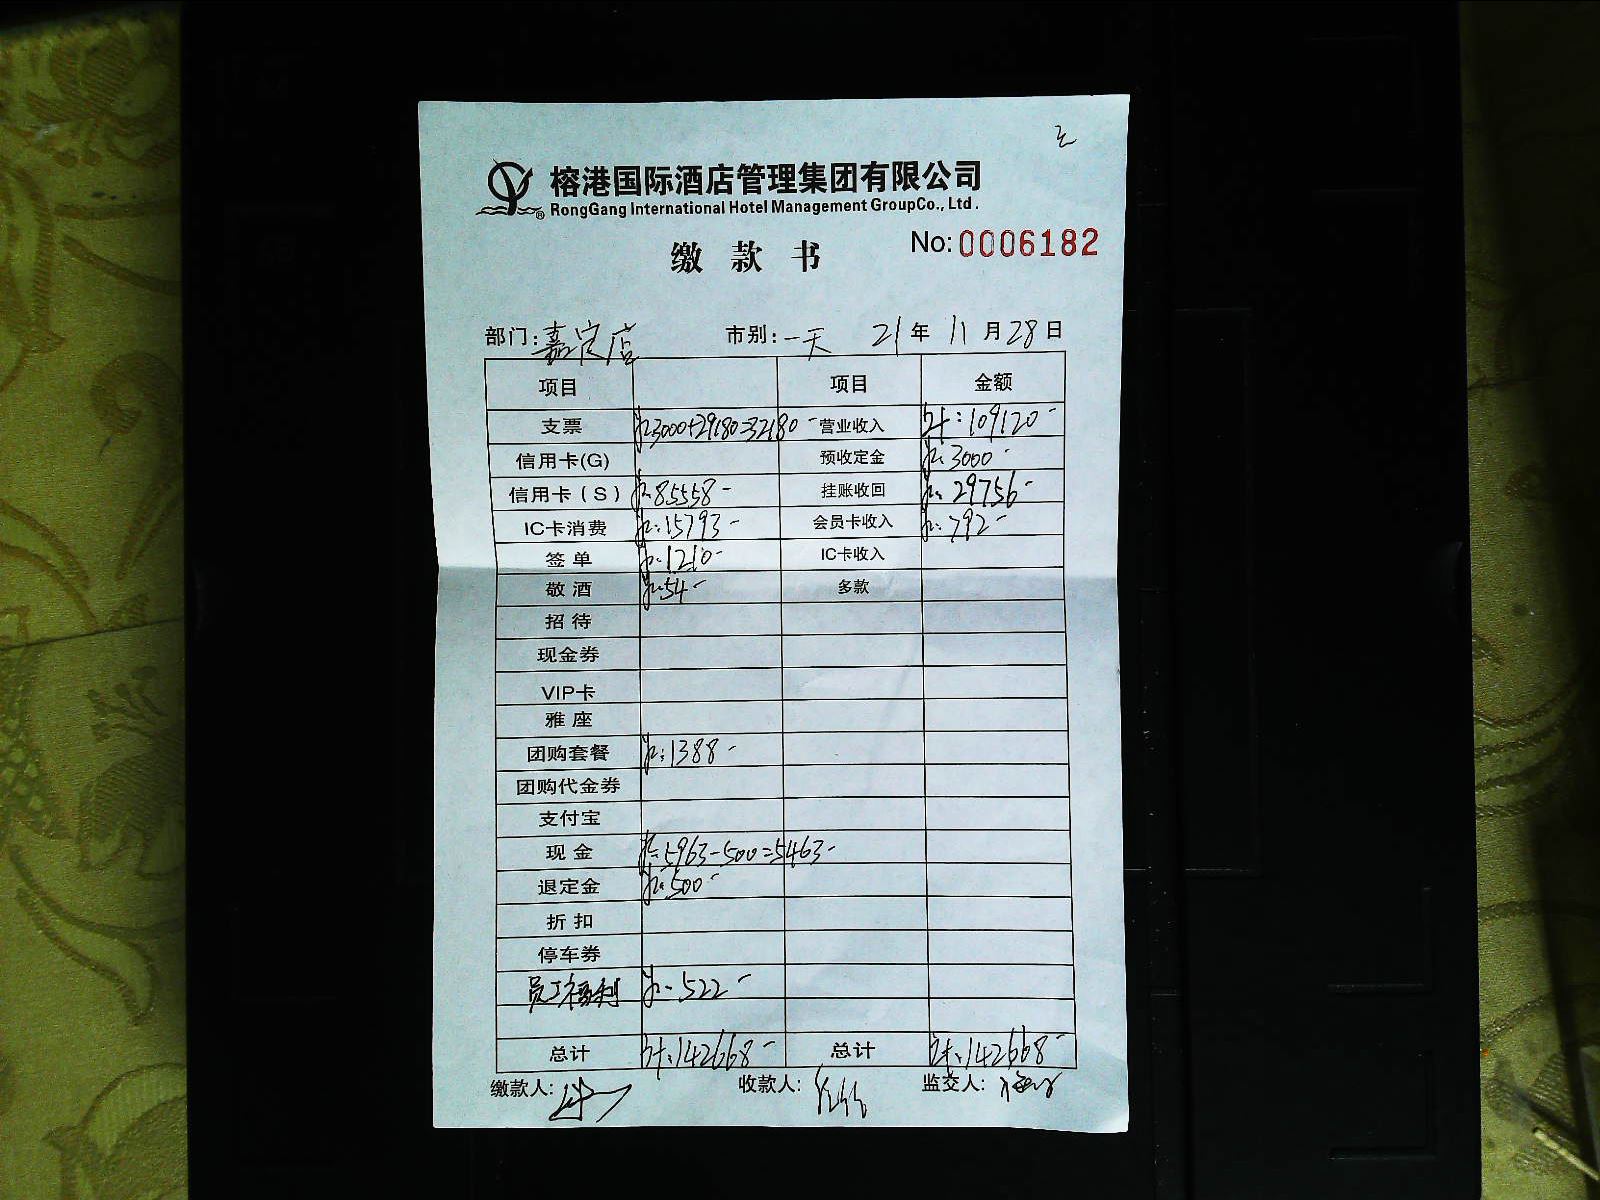 榕港国际酒店管理集团有限公司
RongGang International Hotel Management GroupCo., Ltd.
缴款书 No:0006182
部门:嘉定店 市别:一天 21年11月28日
项目 项目 金额
支票 3000+29180=32180- 营业收入 计:109120-
信用卡(G) 预收定金 3000-
信用卡(S) 85558- 挂账收回 29756-
IC卡消费 15793- 会员卡收入 792-
签单 1210- IC卡收入
敬酒 54- 多款
招待
现金券
VIP卡
雅座
团购套餐 1388-
团购代金券
支付宝
现金 5963-500=5463-
退定金 500-
折扣
停车券
员工福利 522-
总计 计:142668- 总计 计:142668-
缴款人: 收款人: 监交人: